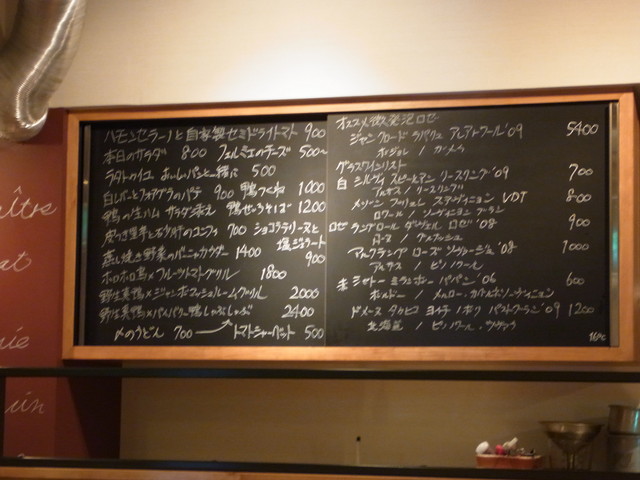 ハモンセラーノと自家製セミドライトマト 900
本日のサラダ 800 フェルミエのチーズ 500〜
ラタトゥイユ おいしいパンと一緒に 500
白レバーとフォアグラのパテ 900 鴨つくね 1000
鴨の生ハム サラダ添え 鴨せいろそば 1200
皮つき里芋と砂肝のコンフィ 700 ショコラテリーヌと
蒸し焼き野菜のバーニャカウダー 1400 塩ジェラート
900
ホロホロ鳥×フルーツトマトグリル 1800
野生真鴨×ジャンボマッシュルームグリル 2000
野生真鴨×バルバリー鴨しゃぶしゃぶ 2400
〆のうどん 700 トマトシャーベット 500
オススメ微発泡ロゼ
ジャン クロード ラパリュ アレアトワール '09 5400
ボジョレー / ガメイ
グラスワインリスト
白 シルヴィ スピールマン リースリング '09 700
アルザス / リースリング
メゾン ステヴィニョン VDT 800
ロワール / ソーヴィニヨン ブラン
ロゼ ランドロール ロゼ '08 900
ローヌ / グルナッシュ
ローズ ソヴァージュ '08 1000
アルザス / ピノノワール
赤 シャトー ミランボー パパン '06 600
ボルドー / メルロー・カベルネソーヴィニヨン
ドメーヌ タカヒコ ヨイチ ノボリ パストゥグラン '09 1200
北海道 / ピノノワール・ツヴァイ
aître
at
nie
uin